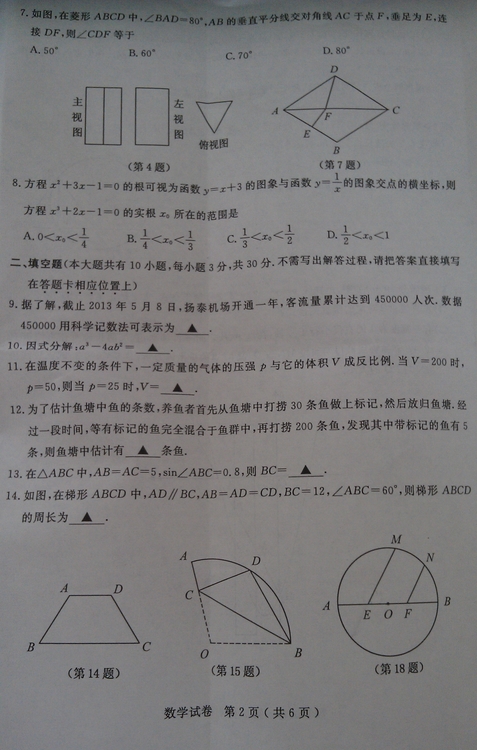 7.如图,在菱形 ABCD 中,∠BAD=80°,AB 的垂直平分线交对角线 AC 于点 F,垂足为 E,连
接 DF,则∠CDF 等于
A. 50° B. 60° C. 70° D. 80°
主视图 左视图 俯视图
A D C F E B
(第 4 题) (第 7 题)
8.方程 x²+3x−1=0 的根可视为函数 y=x+3 的图象与函数 y=1/x 的图象交点的横坐标,则
方程 x³+2x−1=0 的实根 x₀ 所在的范围是
A. 0<x₀<1/4 B. 1/4<x₀<1/3 C. 1/3<x₀<1/2 D. 1/2<x₀<1
二、填空题(本大题共有 10 小题,每小题 3 分,共 30 分.不需写出解答过程,请把答案直接填写
在答题卡相应位置上)
9.据了解,截止 2013 年 5 月 8 日,扬泰机场开通一年,客流量累计达到 450000 人次.数据
450000 用科学记数法可表示为 ▲ .
10.因式分解:a³−4ab²= ▲ .
11.在温度不变的条件下,一定质量的气体的压强 p 与它的体积 V 成反比例.当 V=200 时,
p=50,则当 p=25 时,V= ▲ .
12.为了估计鱼塘中鱼的条数,养鱼者首先从鱼塘中打捞 30 条鱼做上标记,然后放归鱼塘.经
过一段时间,等有标记的鱼完全混合于鱼群中,再打捞 200 条鱼,发现其中带标记的鱼有 5
条,则鱼塘中估计有 ▲ 条鱼.
13.在△ABC 中,AB=AC=5,sin∠ABC=0.8,则 BC= ▲ .
14.如图,在梯形 ABCD 中,AD∥BC,AB=AD=CD,BC=12,∠ABC=60°,则梯形 ABCD
的周长为 ▲ .
A D B C
A D C O B
M N A E O F B
(第 14 题) (第 15 题) (第 18 题)
数学试卷 第 2 页(共 6 页)